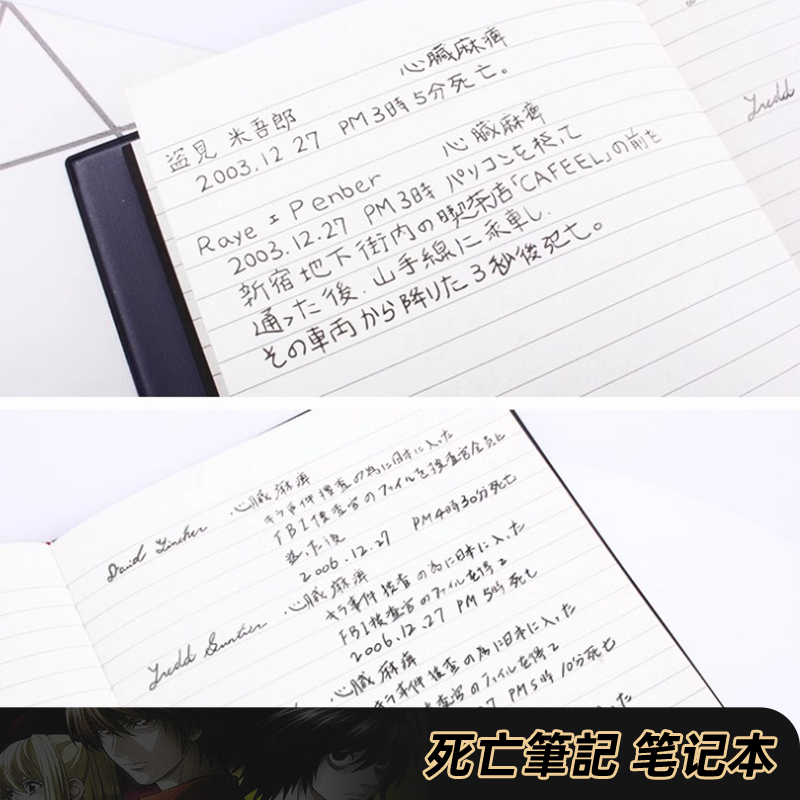 心臓麻痺
盗見 米吾郎
2003.12 27 PM3時5分死亡。
心臓麻痺
Raye Penber
2003.12.27 PM3時 パソコンを残って
新宿地下街内の喫茶店「CAFEEL」の前を
通った後、山手線に乗車し、
その車両から降りた3秒後死亡。
Fredd
David 心臓麻痺
キラ事件捜査の為に日本に入った
FBI捜査官のファイルを捜査官全員に
送った後
2006.12.27 PM4時30分死亡
Fredd Guntier 心臓麻痺
キラ事件捜査の為に日本に入った
FBI捜査官のファイルを得て
2006.12.27 PM5時死亡
心臓麻痺
キラ事件捜査の為に日本に入った
捜査官のファイルを得て
7 PM5時10分死亡
死亡筆記 笔记本